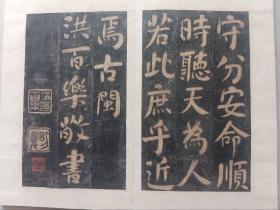 守分安命順
時聽天為人
若此庶乎近
焉古閩
洪百樂敬書